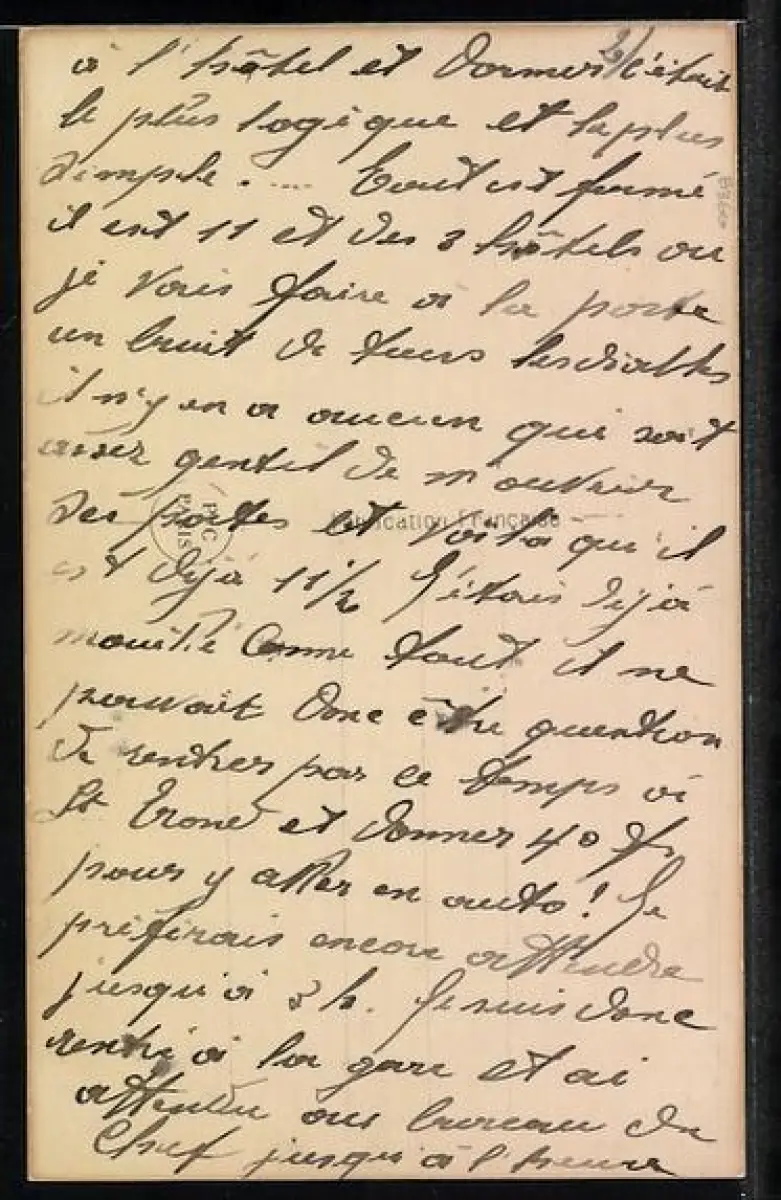 2/
à l'hôtel et dormir c'était
le plus logique et le plus
simple. .... Tout est fermé
il est 11 et des 3 hôtels ou
je vais faire à la porte
un bruit de tous les diables
il n'y en a aucun qui soit
assez gentil de m'ouvrir
des portes et voilà qu'il
est déjà 11 1/2 J'étais déjà
mouillé comme tout il ne
pouvait donc être question
de rentrer par ce temps à
St Trond et donner 40 fr
pour y aller en auto! Je
préférais encore attendre
jusqu'à 3 h. Je suis donc
rentré à la gare et ai
attendu au bureau du
Chef jusqu'à l'heure
Fabrication Française